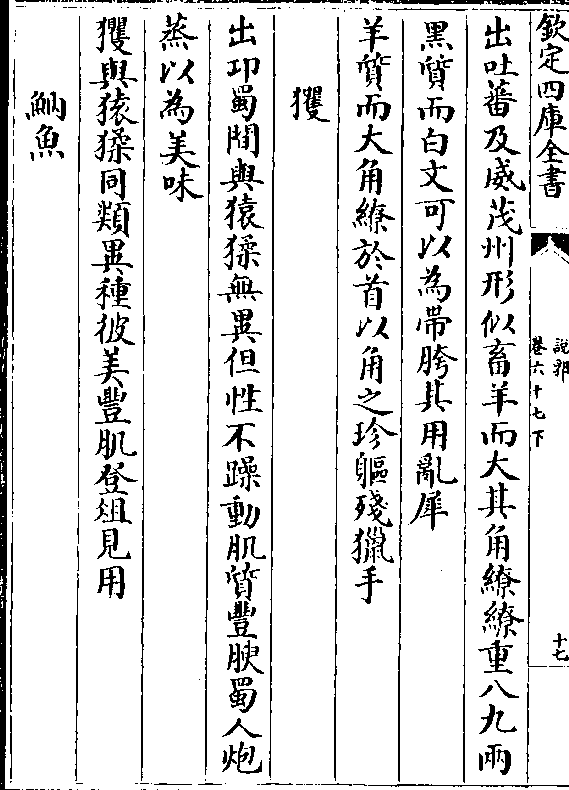 欽定四庫全書
說郛
卷六十七下
十七
出吐蕃及威茂州形似畜羊而大其角繚繚重八九兩
黑質而白文可以為帶胯其用亂犀
羊質而大角繚於首以角之珍軀殘獵手
玃
出邛蜀間與猿猱無異但性不躁動肌質豐腴蜀人炮
蒸以為美味
玃與猿猱同類異種彼美豐肌登俎見用
魶魚